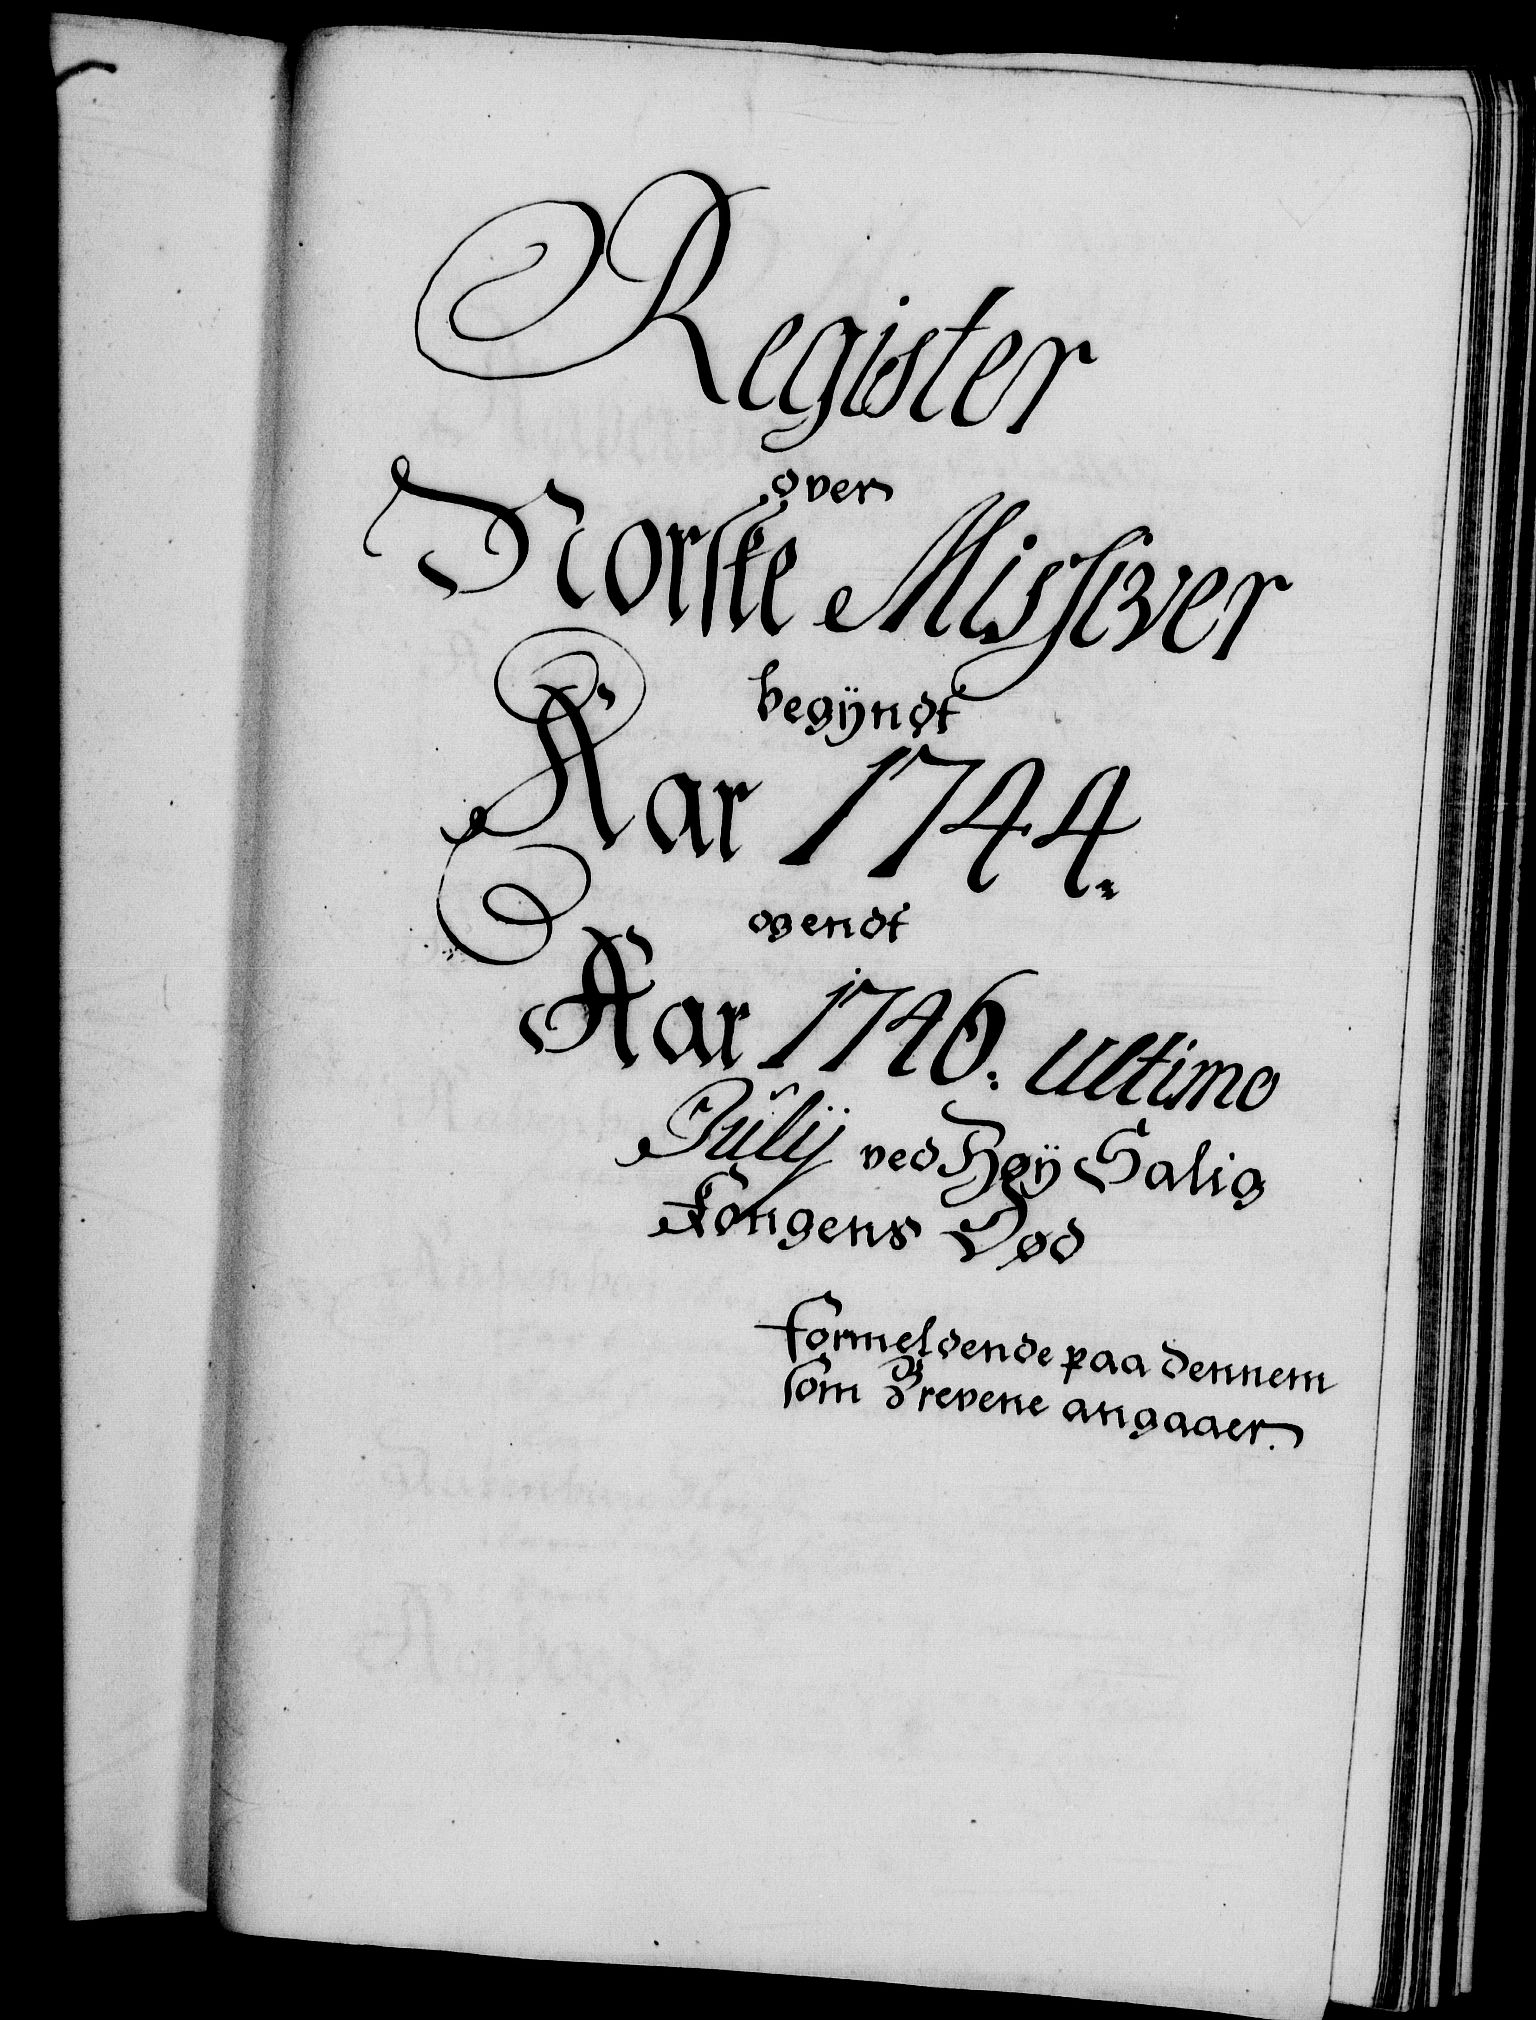 Register
over
Norske Missiver
begÿndt
Aar 1744.
og endt
Aar 1746. Ultimo
Julÿ ved Høÿ Salig
Kongens Død
formeldende paa dennem
som Brevene angaaer.